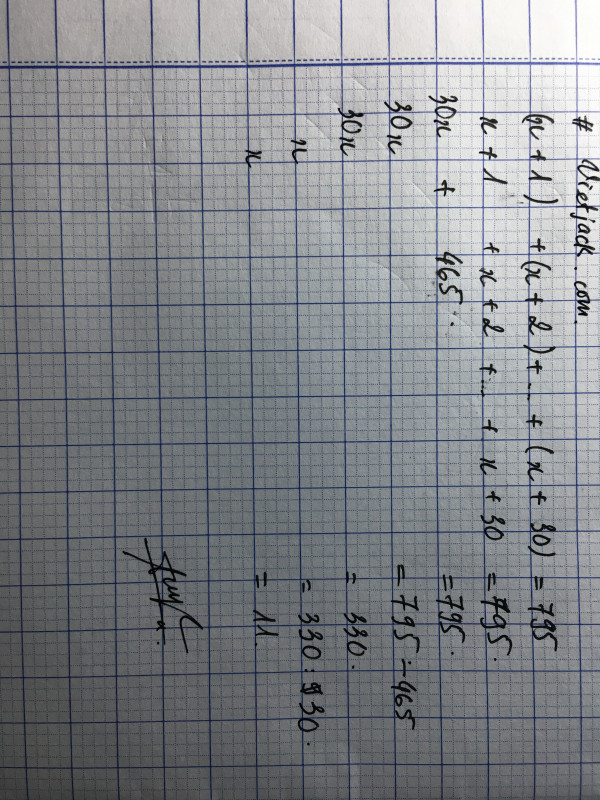 # Vietjack.com.
(x + 1) + (x + 2) + ... + (x + 30) = 795
x + 1 + x + 2 + ... + x + 30 = 795.
30x + 465 = 795.
30x = 795 - 465
30x = 330.
x = 330 : 30.
x = 11.